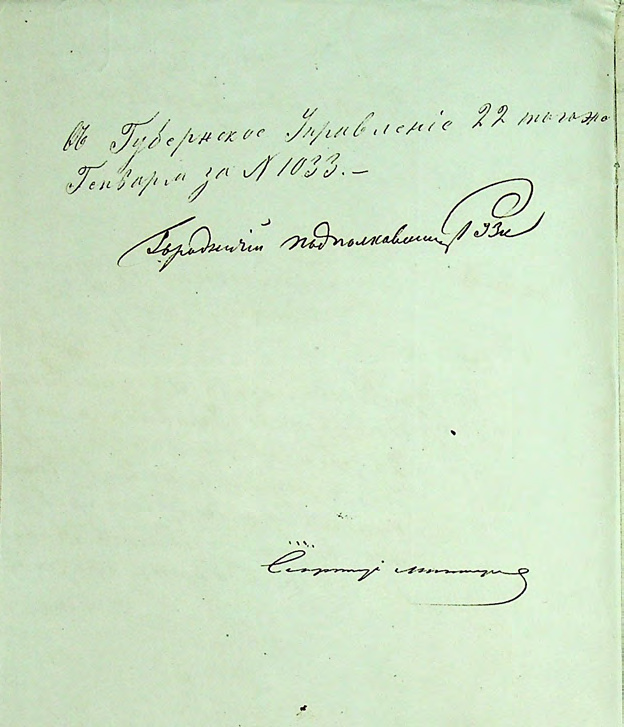 въ Губернское Управленіе 22 тогоже
Генваря за N 1033.—
Городничій подполковникъ